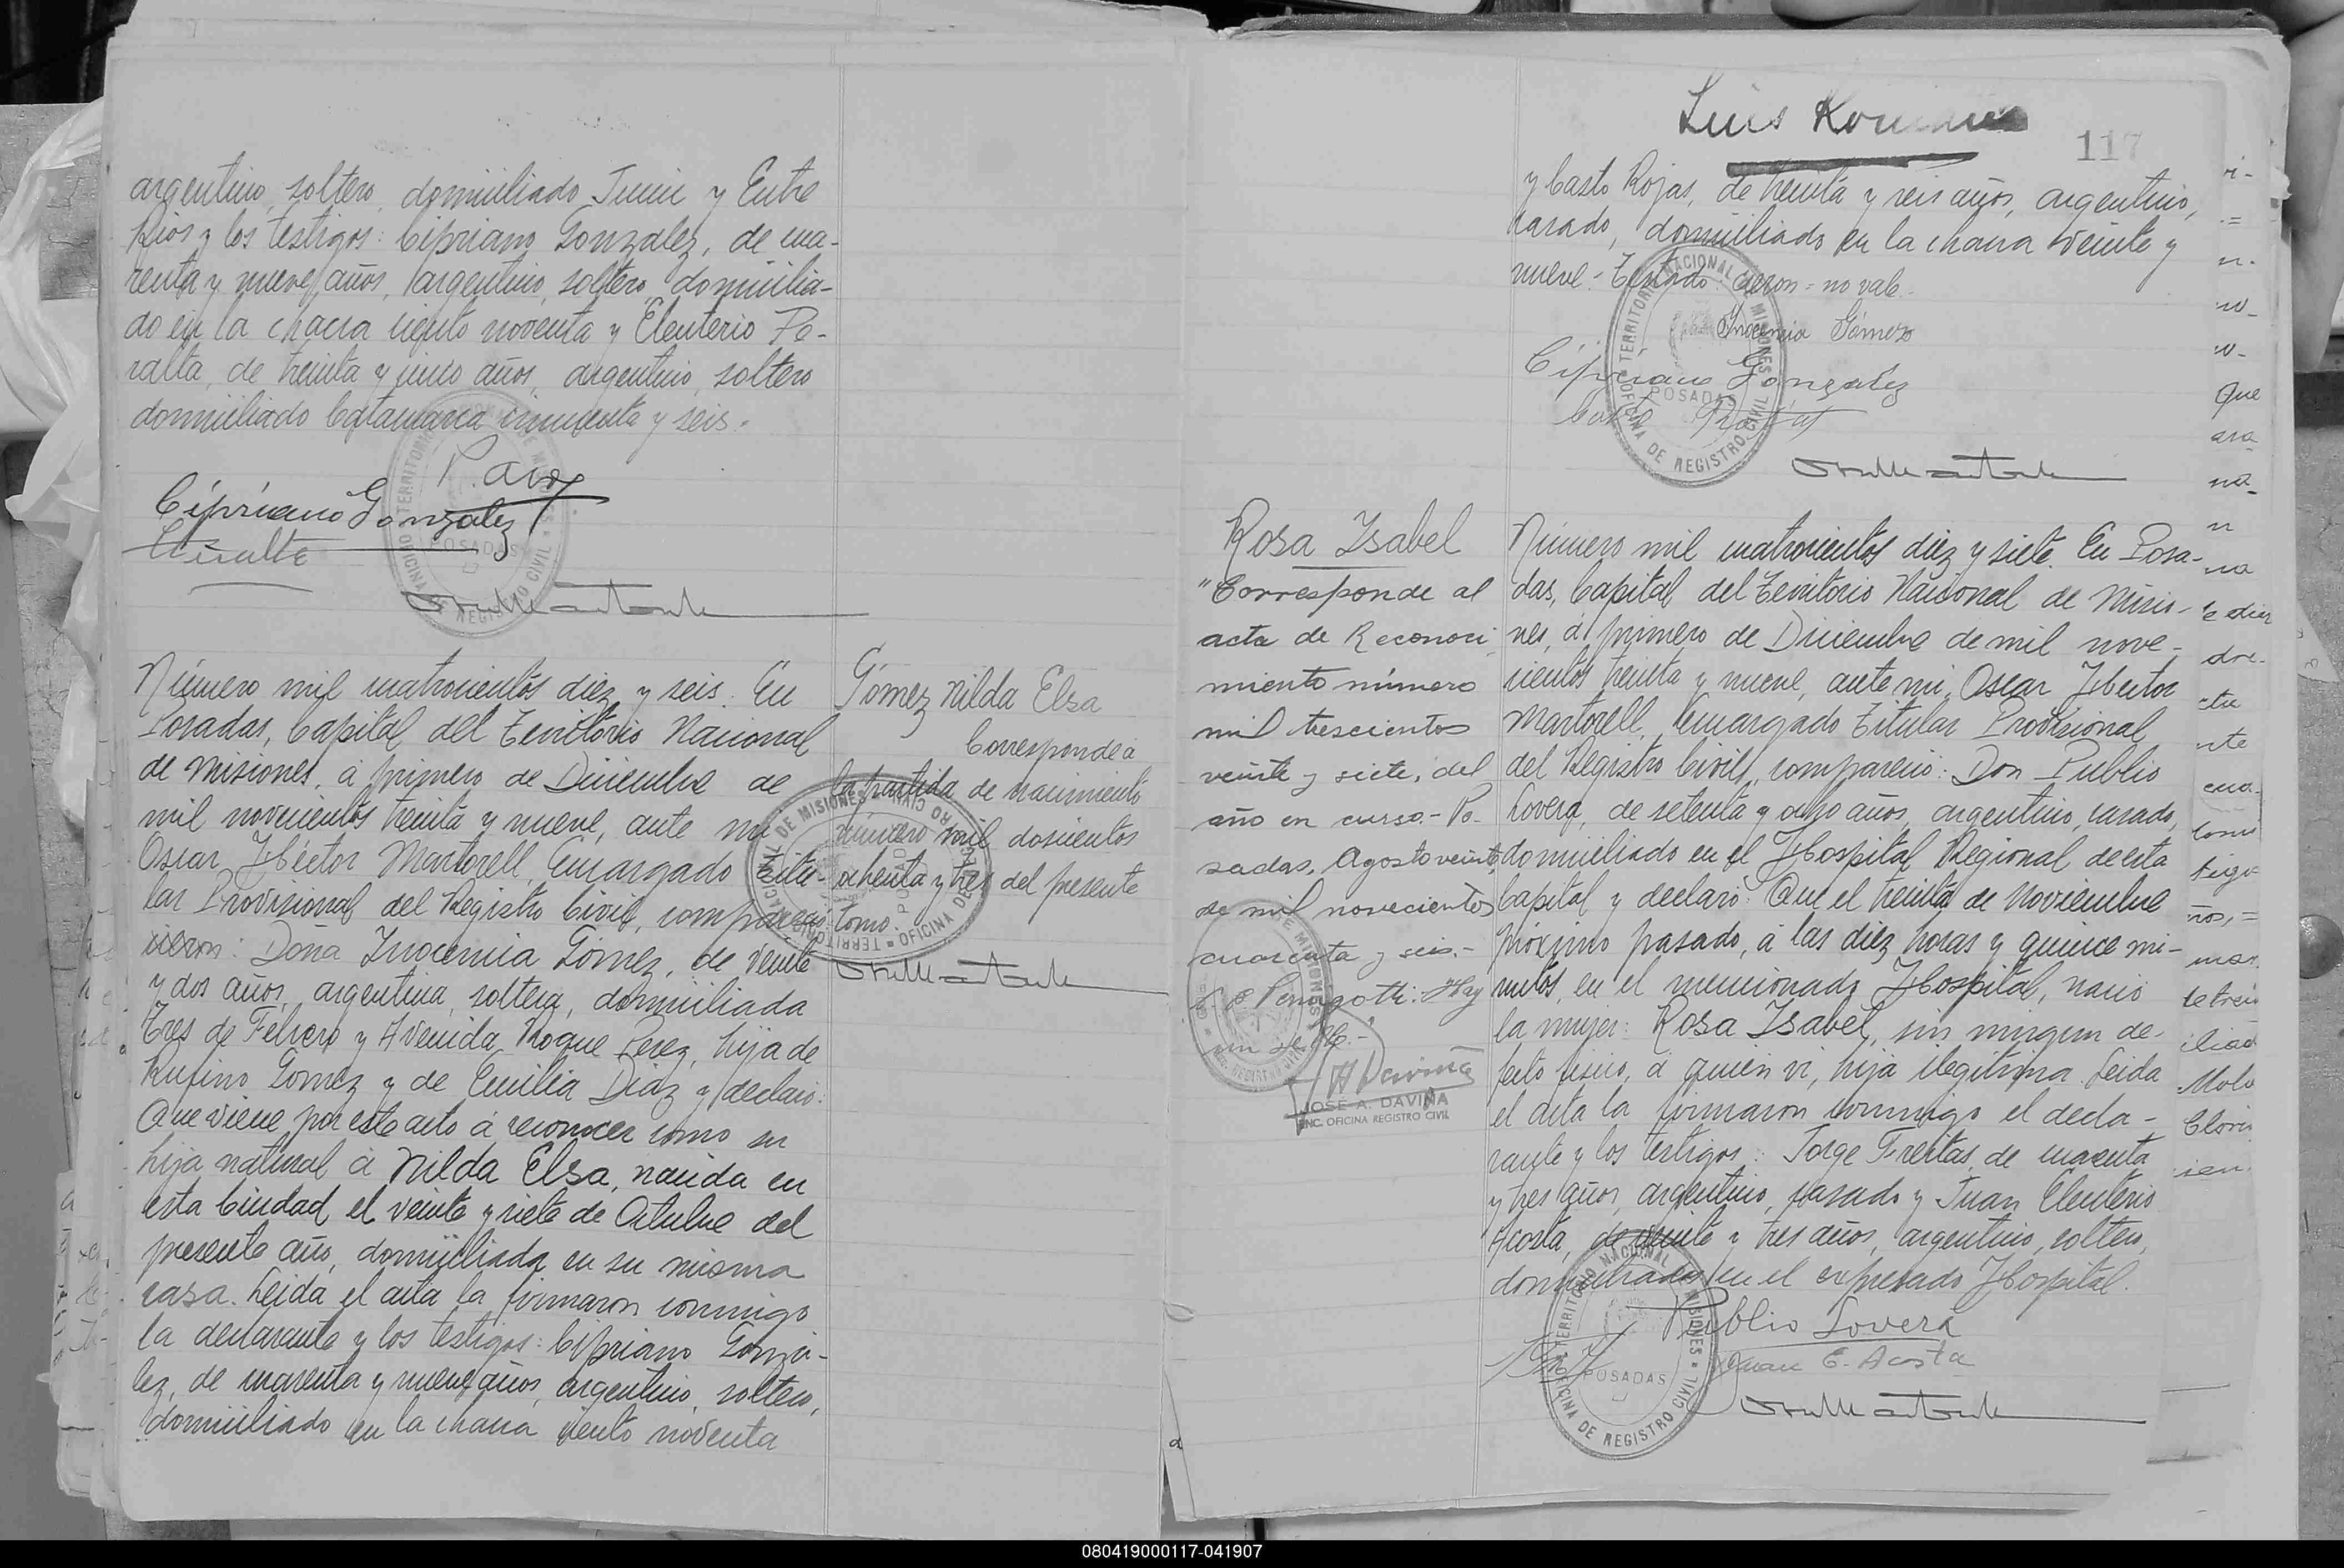 argentino, soltero, domiciliado Junin y Entre
Rios y los testigos: Cipriano Gonzalez, de cua-
renta y nueve años, argentino, soltero, domicilia-
do en la chacra ciento noventa y Eleuterio Pe-
ralta, de treinta y cinco años, argentino, soltero
domiciliado Catamarca cincuenta y seis.
Cipriano Gonzalez
OFICINA DE REGISTRO CIVIL
POSADAS
Número mil cuatrocientos diez y seis. En
Posadas, Capital del Territorio Nacional
de Misiones, á primero de Diciembre de
mil novecientos treinta y nueve, ante mi
Oscar Héctor Martorell, Encargado Titu-
lar Provisional del Registro Civil, compare
cieron: Doña Inocencia Gómez, de veinte
y dos años, argentina, soltera, domiciliada
Tres de Febrero y Avenida Roque Perez, hija de
Rufino Gomez y de Emilia Diaz y declaró:
Que viene por este acto á reconocer como su
hija natural á Nilda Elsa, nacida en
esta Ciudad el veinte y siete de Octubre del
presente año, domiciliada en su misma
casa. Leida el acta la firmaron conmigo
la declarante y los testigos: Cipriano Gonzá-
lez, de cuarenta y nueve años, argentino, soltero,
domiciliado en la chacra ciento noventa
Gómez Nilda Elsa
Corresponde á
la partida de nacimiento
número mil doscientos
ochenta y tres del presente
tomo.
Luis
117
y Casto Rojas, de treinta y seis años, argentino,
casado, domiciliado en la chacra veinte y
nueve.- Testado: cieron = no vale.-
Inocencia Gómez
Cipriano Gonzalez
TERRITORIO NACIONAL DE MISIONES
OFICINA DE REGISTRO CIVIL
POSADAS
Rosa Isabel
"Corresponde al
acta de Reconoci
miento número
mil trescientos
veinte y siete, del
año en curso.- Po-
sadas, Agosto veinte,
de mil novecientos
cuarenta y seis.-
JOSÉ A. DAVIÑA
ENC. OFICINA REGISTRO CIVIL
Número mil cuatrocientos diez y siete. En Posa-
das, Capital del Territorio Nacional de Misio-
nes, á primero de Diciembre de mil nove-
cientos treinta y nueve, ante mi, Oscar Héctor
Martorell, Encargado Titular Provisional
del Registro Civil, compareció: Don Publio
Lovera, de setenta y ocho años, argentino, casado,
domiciliado en el Hospital Regional de esta
Capital y declaró: Que el treinta de Noviembre
próximo pasado, á las diez horas y quince mi-
nutos, en el mencionado Hospital, nació
la mujer: Rosa Isabel, sin ningun de-
fecto fisico, á quien vi, hija ilegitima. Leida
el acta la firmaron conmigo el decla-
rante y los testigos: Jorge Freitas, de cuarenta
y tres años, argentino, casado y Juan Eleuterio
Acosta, de veinte y tres años, argentino, soltero,
domiciliados en el expresado Hospital.
Publio Lovera
Juan E. Acosta
TERRITORIO NACIONAL DE MISIONES
OFICINA DE REGISTRO CIVIL
POSADAS
080419000117-041907